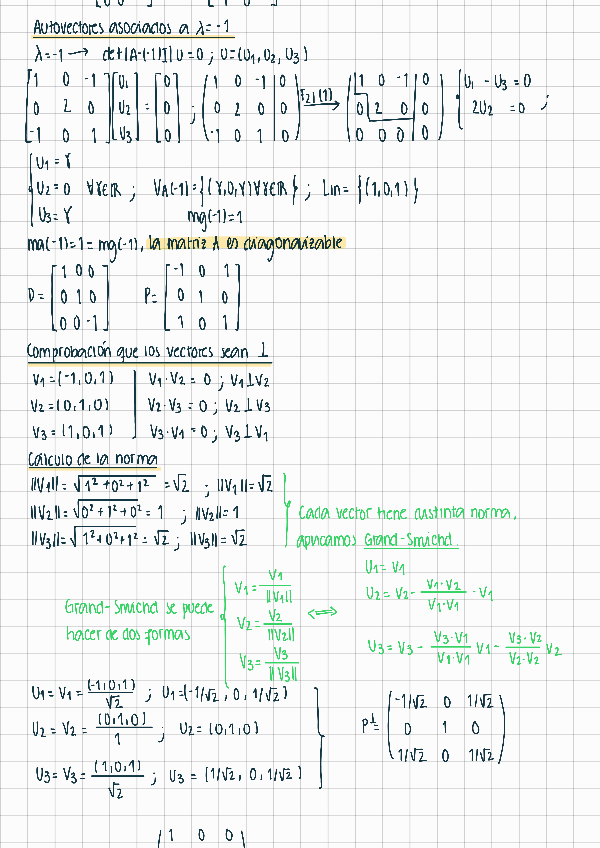 Autovectores asociados a λ=-1
λ=-1 → det[A-(-1)I]U=0 ; U=(U1, U2, U3)
[1 0 -1; 0 2 0; -1 0 1] [U1; U2; U3] = [0; 0; 0] ; (1 0 -1 | 0; 0 2 0 | 0; -1 0 1 | 0) F21(1) → (1 0 -1 | 0; 0 2 0 | 0; 0 0 0 | 0) { U1 - U3 = 0; 2U2 = 0 ;
U1 = γ
U2 = 0 ∀γ∈ℝ ; VA(-1)={(γ,0,γ)∀γ∈ℝ} ; Lin= {(1,0,1)}
U3 = γ mg(-1)=1
ma(-1)=1= mg(-1), la matriz A es diagonalizable
D= [1 0 0; 0 1 0; 0 0 -1] P= [-1 0 1; 0 1 0; 1 0 1]
Comprobación que los vectores sean ⊥
V1=(-1,0,1) V1·V2 = 0 ; V1⊥V2
V2=(0,1,0) V2·V3 = 0 ; V2⊥V3
V3=(1,0,1) V3·V1 =0 ; V3⊥V1
Cálculo de la norma
||V1||= √1²+0²+1² = √2 ; ||V1||=√2
||V2||= √0²+1²+0² = 1 ; ||V2||=1
||V3||= √1²+0²+1² = √2 ; ||V3||=√2
Cada vector tiene distinta norma,
aplicamos Grand-Smichd
Grand-Smichd se puede
hacer de dos formas
V1 = V1/||V1||
V2 = V2/||V2||
V3 = V3/||V3||
⟺
U1 = V1
U2 = V2 - V1·V2/V1·V1 · V1
U3 = V3 - V3·V1/V1·V1 V1 - V3·V2/V2·V2 V2
U1= V1 = (-1,0,1)/√2 ; U1=(-1/√2, 0, 1/√2)
U2 = V2 = (0,1,0)/1 ; U2=(0,1,0)
U3= V3= (1,0,1)/√2 ; U3 = (1/√2, 0, 1/√2)
P⊥= (-1/√2 0 1/√2; 0 1 0; 1/√2 0 1/√2)
1 0 0